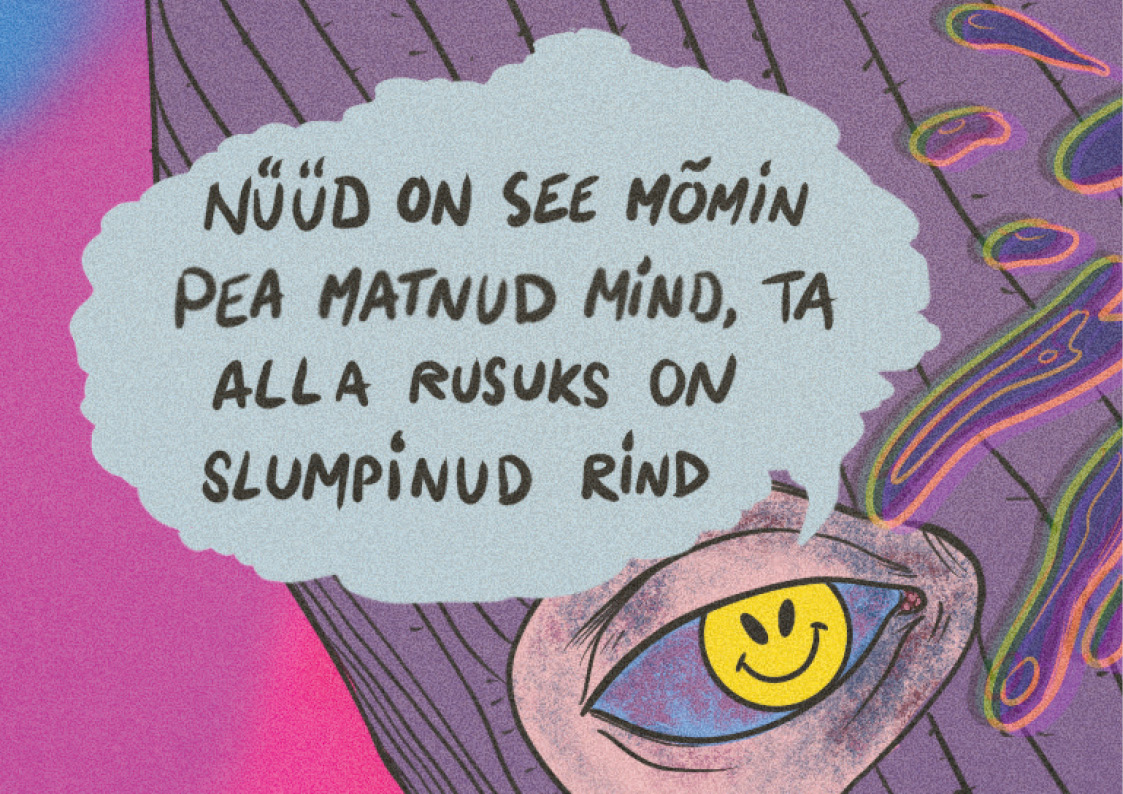 NÜÜD ON SEE MÕMIN
PEA MATNUD MIND, TA
ALLA RUSUKS ON
SLUMPINUD RIND